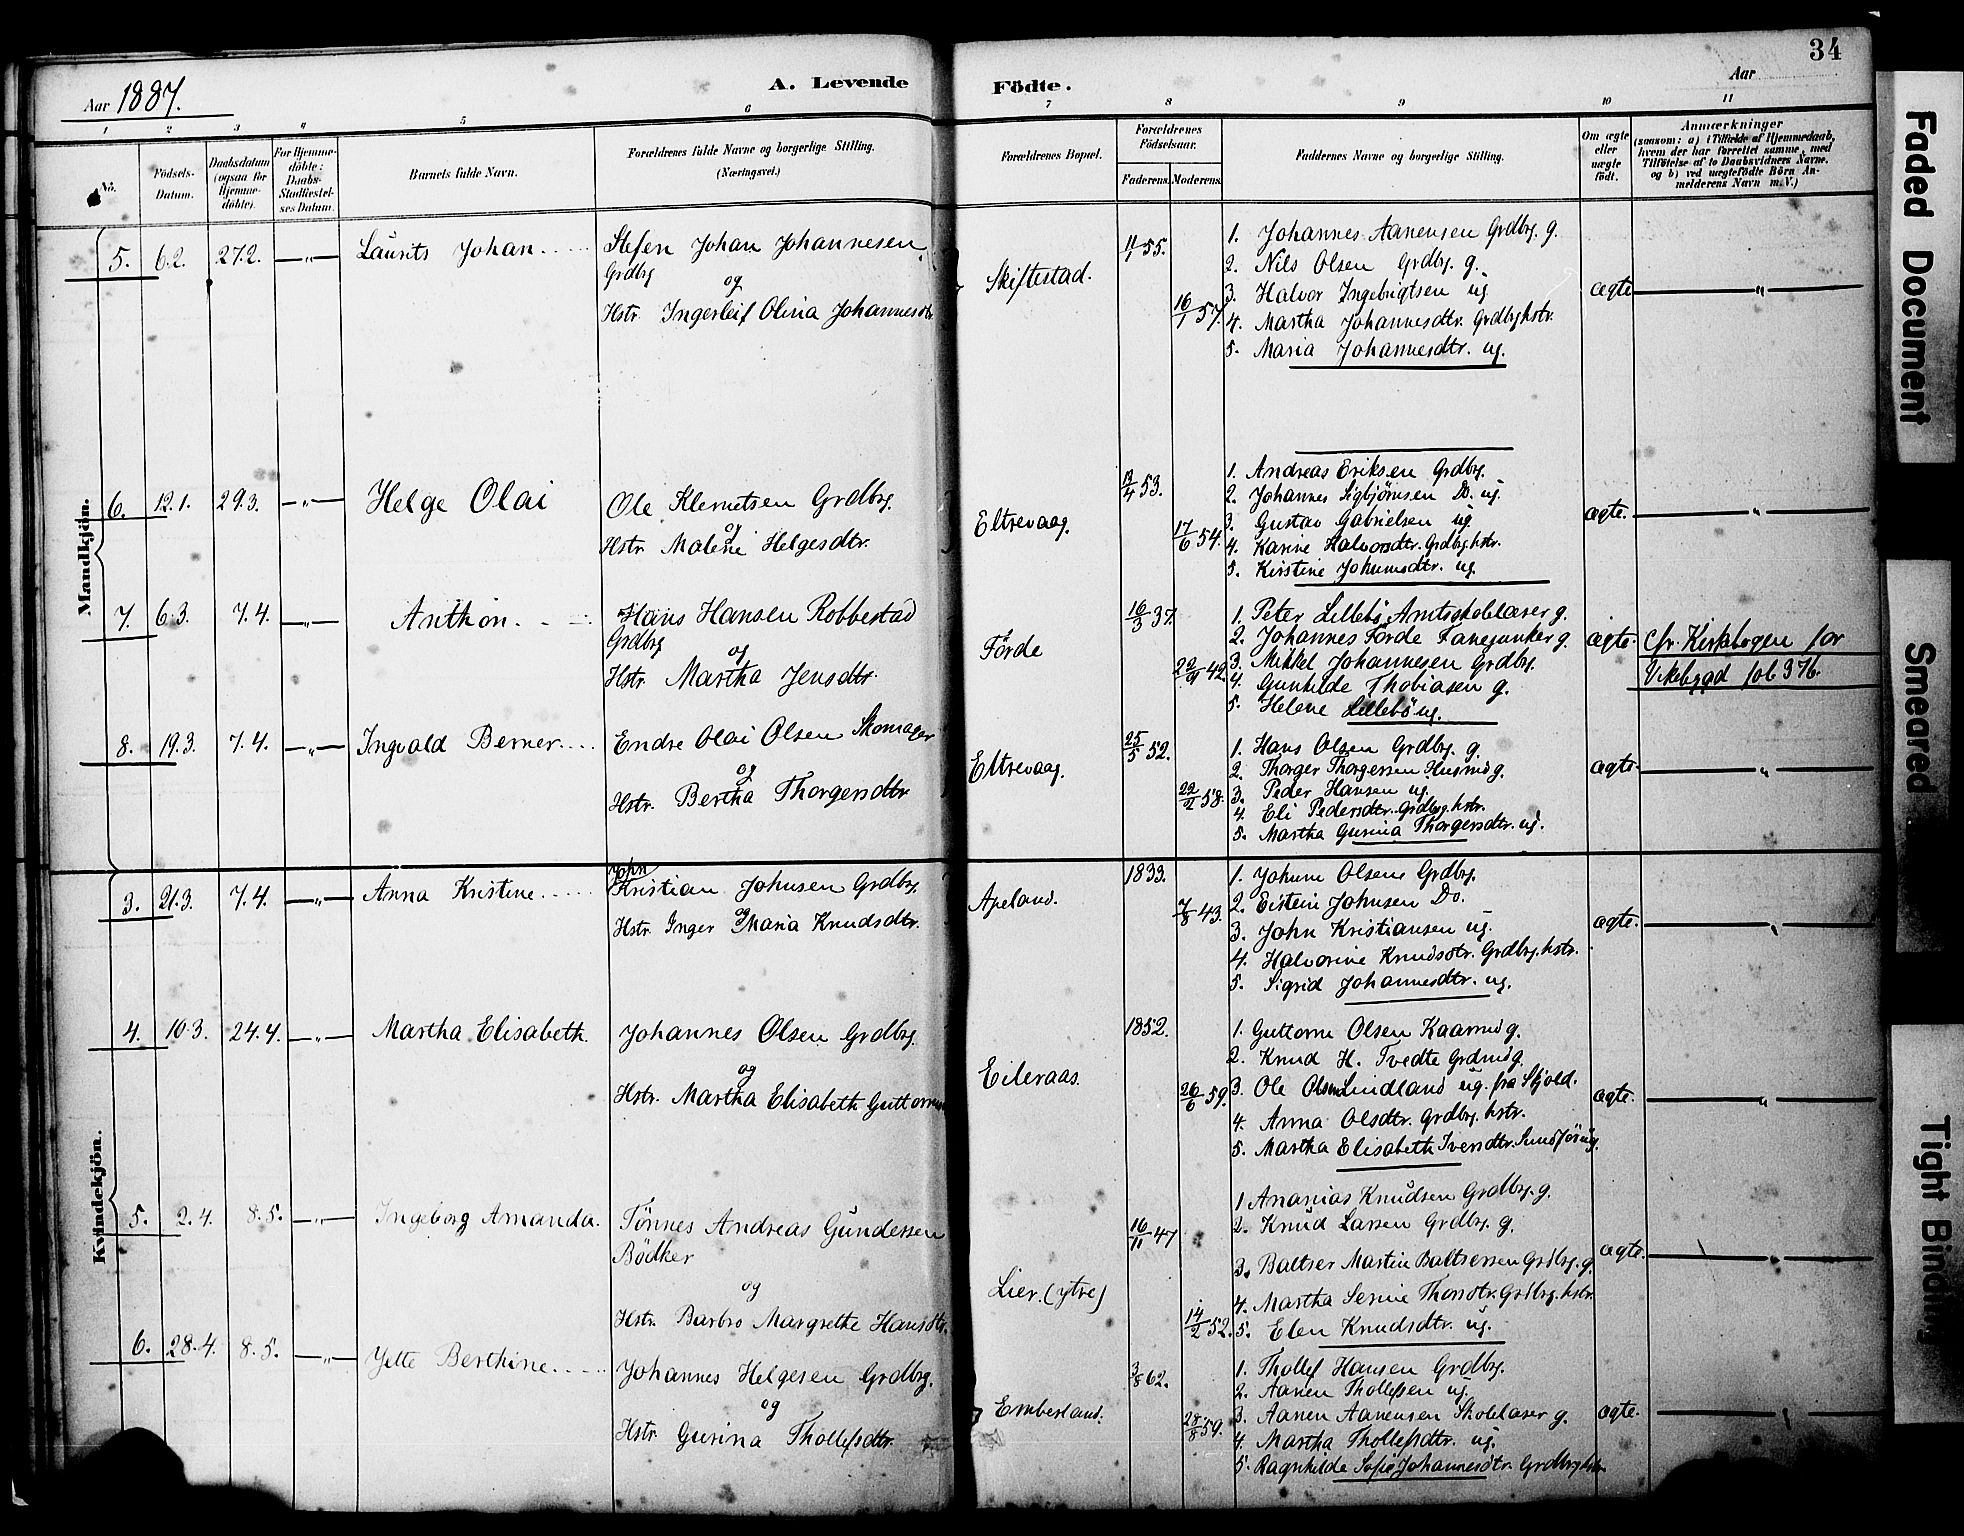 34
Aar 1887.
A. Levende Födte.
Aar
1 2 3 4 5 6 7 8 9 10 11
No.
Födsels-Datum.
Daabsdatum (ogsaa for Hjemmedöbte).
For Hjemmedöbte: Daabs-Stadfæstelses Datum.
Barnets fulde Navn.
Forældrenes fulde Navne og borgerlige Stilling.
(Næringsvei.)
Forældrenes Bopæl.
Forældrenes Födselsaar.
Faderens. Moderens.
Faddernes Navne og borgerlige Stilling.
Om ægte eller uægte födt.
Anmærkninger
(saasom: a) i Tilfælde af Hjemmedaab,
hvem der har forrettet samme, med
Tilföielse af to Daabsvidners Navne,
og b) ved uægtefödte Börn An-
melderens Navn m. V.)
Mandkjön.
5. 6.2. 27.2. —"— Laurits Johan
Stefen Johan Johannesen
Grdbrg
og
Hstr. Ingerleif Olina Johannesdtr.
Skiftestad.
4/1 55.
16/1 57.
1. Johannes Aanensen Grdbrg. g.
2. Nils Olsen Grdbrg. g.
3. Halvor Ingebrigtsen ug.
4. Martha Johannesdtr. Grdbrghstr.
5. Maria Johannesdtr. ug.
ægte — " —
6. 12.1. 29.3. —"— Helge Olai
Ole Klemetsen Grdbrg.
og
Hstr. Malene Helgesdtr.
Eltrevaag.
53.
17/6 54.
1. Andreas Eriksen Grdbrg.
2. Johannes Sigbjörnsen Do. ug.
3. Gustav Gabrielsen ug
4. Karine Halvorsdtr. Grdbrg.hstr.
5. Kirstine Johannesdtr. ug.
ægte. — " —
7. 6.3. 7.4. —"— Anthon.
Hans Hansen Robbestad
Grdbrg
og
Hstr. Martha Jensdtr.
Förde
16/3 37.
22/9 42.
1. Peter Lillebö Amtsskolelærer g.
2. Johannes Förde Fanejunker g.
3. Mikkel Johannesen Grdbrg.
4. Gunhilde Thobiasen g.
5. Helene Lillebö ug.
ægte. Cfr. Kirkebogen for
Vikebygd fol. 376.
8. 19.3. 7.4. —"— Ingvald Berner
Endre Olai Olsen Skomager
og
Hstr. Bertha Thorgersdtr
Eltrevaag.
25/5 52.
22/2 58.
1. Hans Olsen Grdbrg. g.
2. Thorger Thorgersen Husmd g.
3. Peder Hansen ug.
4. Eli Pedersdtr. Grdbrg.hstr.
5. Martha Gurina Thorgersdtr. ug.
ægte. — " —
Kvindekjön.
3. 21.3. 7.4. —"— Anna Kristine
John
Kristian Johnsen Grdbrg.
og
Hstr. Inger Maria Knudsdtr.
Apeland.
1833.
7/8 43.
1. Johune Olsene Grdbrg.
2. Eistein Johnsen Do.
3. John Kristiansen ug.
4. Halvorine Knudsdtr. Grdbrg.hstr.
5. Sigrid Johannesdtr. ug.
ægte.
4. 10.3. 24.4. —"— Martha Elisabeth.
Johannes Olsen Grdbrg.
og
Hstr. Martha Elisabeth
Eileraas.
1852.
26/6 59.
1. Guttorm Olsen Kaarmd g.
2. Knud H. Tvedte Grdmd g.
3. Ole Olsen Lindland ug. fra Skjold.
4. Anna Olsdtr. Grdbrg. hstr.
5. Martha Elisabeth Iversdtr.
ægte. — " —
5. 2.4. 8.5. —"— Ingeborg Amanda.
Tönnes Andreas Gundersen
Bödker
og
Hstr. Barbro Margrethe Hansdtr.
Lier. (ytre)
16/11 47
14/2 52.
1 Ananias Knudsen Grdbrg. g.
2. Knud Larsen Grdbrg. g.
3. Baltser Martin Baltsersen Grdbrg. g.
4. Martha Serine Thorsdtr. Grdbrg. hstr.
5. Elen Knudsdtr. ug.
ægte.
6. 28.4. 8.5. —"— Jette Berthine
Johannes Helgesen Grdbrg.
og
Hstr. Gurina Thollefsdtr.
Emberland.
3/8 62.
28/8 59.
1. Thollef Hansen Grdbrg.
2. Aanen Thollefsen ug.
3. Aanen Aanensen Skolelærer g.
4. Martha Thollefsdtr. ug.
5. Ragnhilde Sofie Johannesdtr. Grdbrg hstr.
ægte.
Faded Document
Smeared
Tight Binding